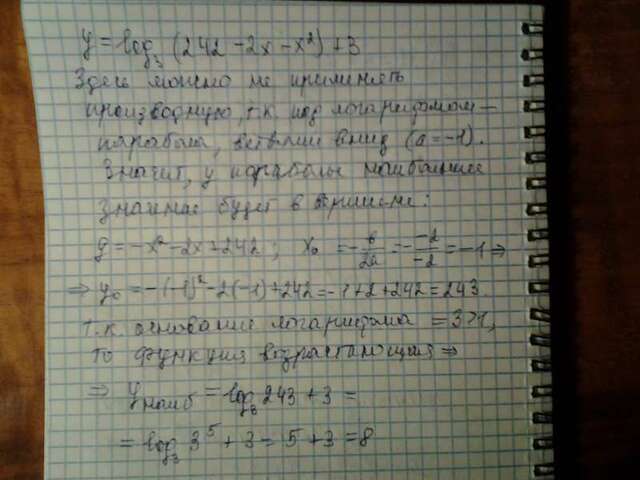 y = log₃ (242 - 2x - x²) + 3
Здесь можно не применять
производную, т.к. под логарифмом -
парабола, ветвями вниз (a = -1).
Значит, у параболы наибольшее
значение будет в вершине:
y = -x² - 2x + 242 ; x₀ = -b/2a = - -2/-2 = -1 ⇒
⇒ y₀ = -(-1)² - 2(-1) + 242 = -1 + 2 + 242 = 243.
Т.к. основание логарифма = 3 > 1,
то функция возрастающая ⇒
⇒ y наиб = log₃ 243 + 3 =
= log₃ 3⁵ + 3 = 5 + 3 = 8